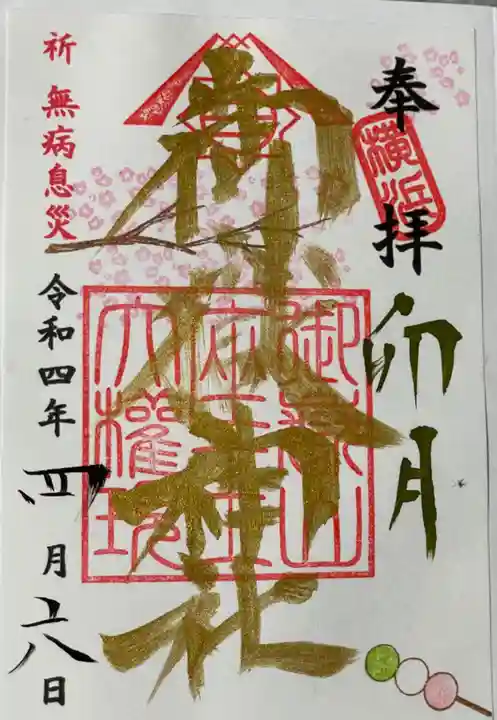 奉拝
横浜
卯月
御嶽神社
御嶽山
大權現
祈 無病息災
令和四年四月 八日